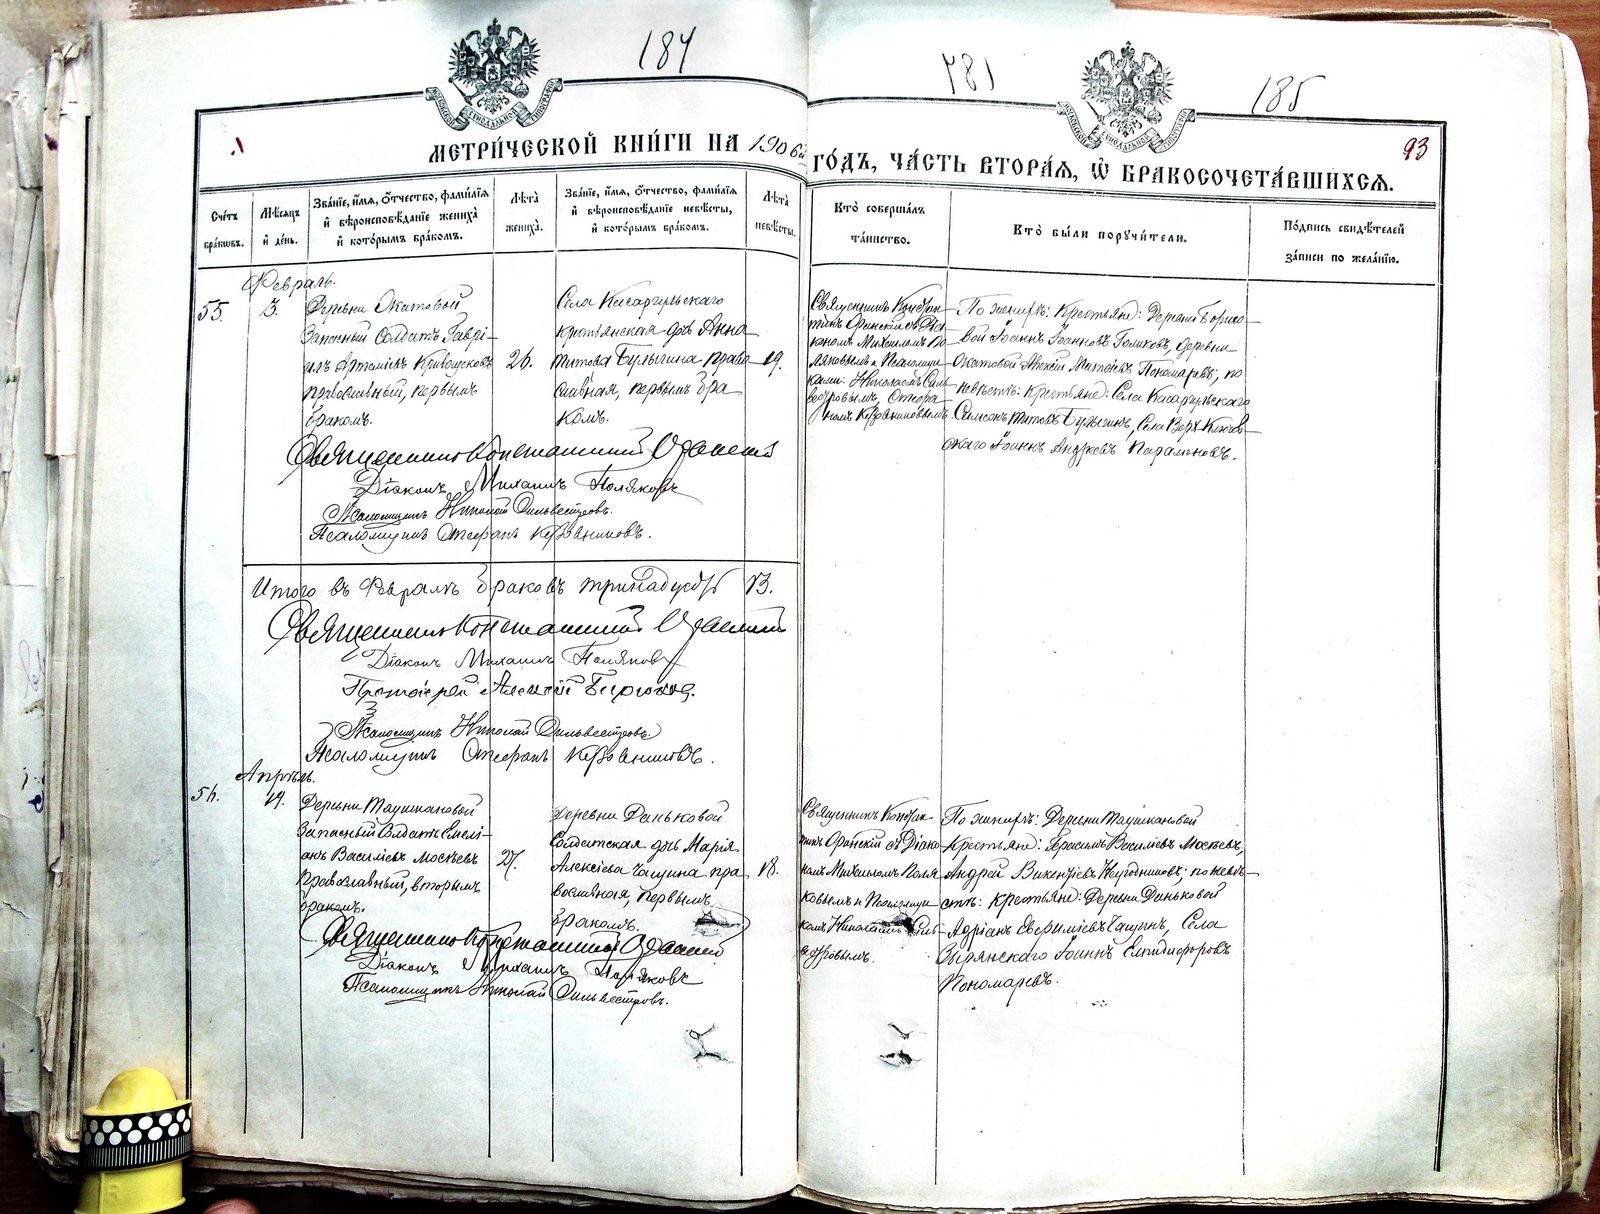 184
185
93
МЕТРИ́ЧЕСКОЙ КНИ́ГИ НА 1906й ГО́ДЪ, ЧА́СТЬ ВТОРА́Я, Ѽ БРАКОСОЧЕТА́ВШИХСЯ.
Сче́тъ бра́ковъ.
Мѣ́сяцъ и де́нь.
Зва́нїе, и́мя, ѻ́тчество, фами́лїя и вѣроисповѣ́данїе жениха̀ и кото́рымъ бра́комъ.
Лѣ́та жениха̀.
Зва́нїе, и́мя, ѻ́тчество, фами́лїя и вѣроисповѣ́данїе невѣ́сты, и кото́рымъ бра́комъ.
Лѣ́та невѣ́сты.
Кто̀ соверша́лъ та́инство.
Кто̀ бы́ли поручи́тели.
По́дпись свидѣ́телей за́писи по жела́нїю.
Февраль.
55.
3.
Деревни Окатовой
Запасный Солдатъ Гаврі-
илъ Артеміевъ Кривощековъ
православный, первымъ
бракомъ.
26.
Села Кисаргульскаго
крестьянская дочь Анна
Титова Булыгина право
славная, первымъ бра
комъ.
19.
Священникъ Констан
тинъ Оранскій съ Діа
кономъ Михаиломъ По
ляковымъ и Псаломщи
ками: Николаемъ Силь
вестровымъ, Стефа
номъ
По женихѣ: Крестьяне: Деревни
вой Іоаннъ Іоанновъ Голиковъ, деревни
Окатовой Алексій Пономаревъ; по
невѣстѣ: Крестьяне: Села Кисаргульскаго
Самсонъ Титовъ Булыгинъ, Села Верх-
скаго Іоаннъ Андреевъ Парамоновъ.
Священникъ Константинъ Оранскій
Діаконъ Михаилъ Поляковъ
Псаломщикъ Николай Сильвестровъ.
Псаломщикъ Стефанъ
Итого въ Февралѣ браковъ тринадцать 13.
Священникъ Константинъ Оранскій
Діаконъ Михаилъ Поляковъ
Протоіерей Алексій
Псаломщикъ Николай Сильвестровъ
Псаломщикъ Стефанъ
Апрѣль.
56.
19.
Деревни Таушкановой
Запасный Солдатъ Емелі-
анъ Василіевъ Москвевъ
православный, вторымъ
бракомъ.
27.
Деревни Даньковой
Солдатская дочь Марія
Алексіева Чащина пра
вославная, первымъ
бракомъ.
18.
Священникъ Констан
тинъ Оранскій съ Діако
номъ Михаиломъ Поля
ковымъ и Псаломщи
комъ Николаемъ Силь-
вестровымъ.
По женихѣ: Деревни Таушкановой
Крестьяне: Герасимъ Василіевъ Москвевъ,
Андрей Викентіевъ Неугодниковъ; по невѣ-
стѣ: Крестьяне: Деревни Даньковой
Адріанъ Евфиміевъ Чащинъ, Села
Зырянскаго Іоаннъ Елпидифоровъ
Пономаревъ.
Священникъ Константинъ Оранскій
Діаконъ Михаилъ Поляковъ
Псаломщикъ Николай Сильвестровъ.